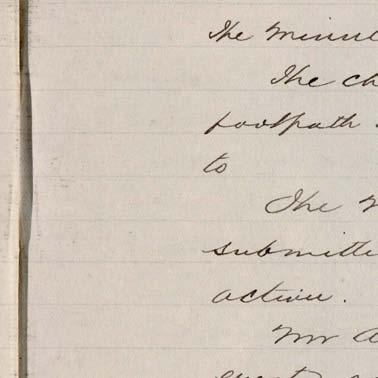 The minu
The ch
footpath
to
The
submitte
action.
Mr